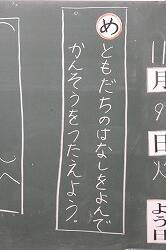 11月9日火ようび
め
ともだちのはなしをよんで
かんそうをつたえよう。